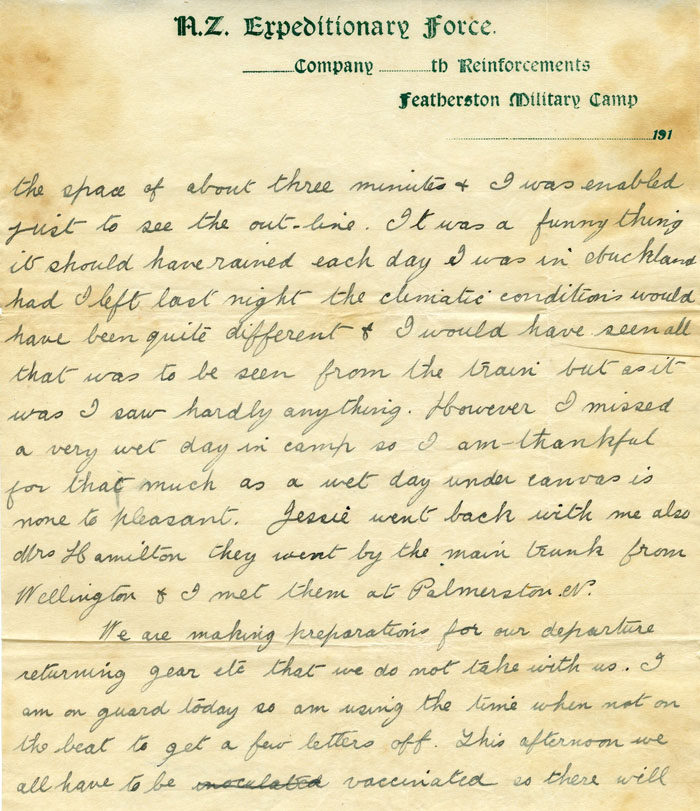 N.Z. Expeditionary Force.
Company th Reinforcements
Featherston Military Camp
191
the space of about three minutes & I was enabled
just to see the out-line. It was a funny thing
it should have rained each day I was in Auckland
had I left last night the climatic conditions would
have been quite different & I would have seen all
that was to be seen from the train but as it
was I saw hardly anything. However I missed
a very wet day in camp so I am thankful
for that much as a wet day under canvas is
none to pleasant. Jessie went back with me also
Mrs Hamilton they went by the main trunk from
Wellington & I met them at Palmerston N.
We are making preparations for our departure
returning gear etc that we do not take with us. I
am on guard today so am using the time when not on
the beat to get a few letters off. This afternoon we
all have to be inoculated vaccinated so there will